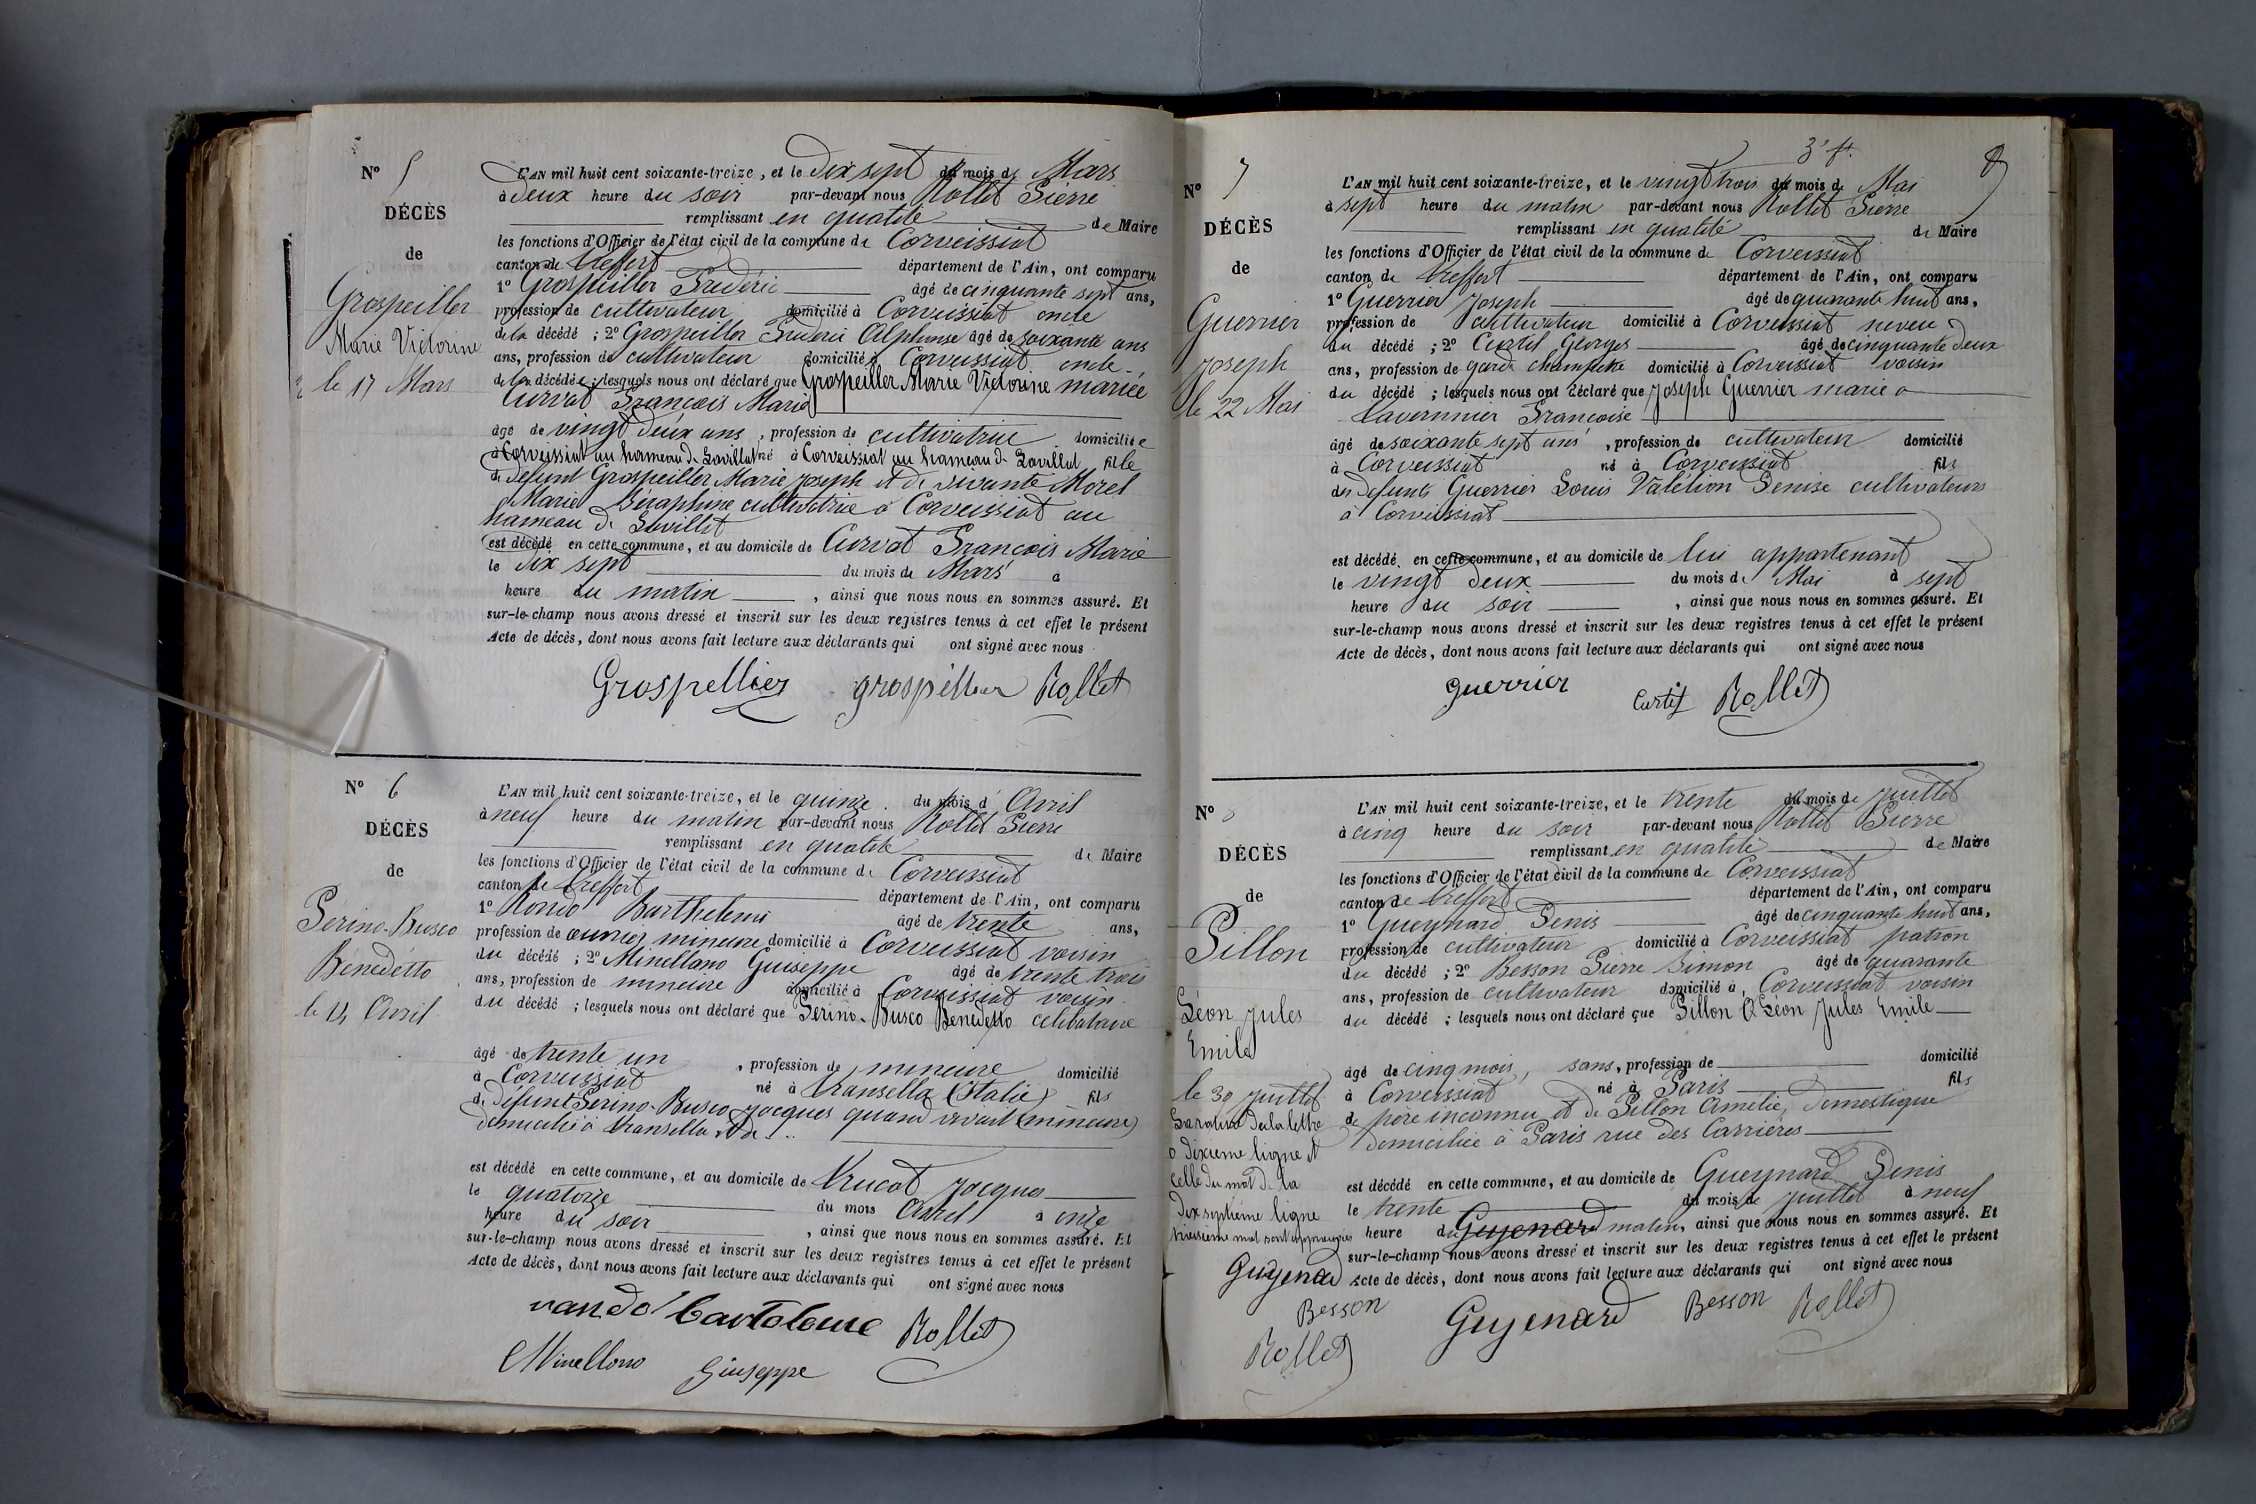 Nº 5
DÉCÈS
de
Grospeiller
Marie Victorine
le 17 Mars
L'AN mil huit cent soixante-treize, et le Dix sept du mois de Mars
à deux heure du soir par-devant nous Rollet Pierre
remplissant en qualité de Maire
les fonctions d'Officier de l'état civil de la commune de Corveissiat
canton de Treffort département de l'Ain, ont comparu
1º Grospeiller Frédéric âgé de cinquante sept ans,
profession de cultivateur domicilié à Corveissiat oncle
de la décédé ; 2º Grospeiller Frederic Alphonse âgé de soixante ans
ans, profession de cultivateur domicilié à Corveissiat oncle
de la décédée ; lesquels nous ont déclaré que Grospeiller Marie Victorine mariée
Curvat François Marie
âgé de vingt deux ans, profession de cultivatrice domiciliée
à Corveissiat au hameau de Lavillat né à Corveissiat au hameau de Lavillat fille
de défunt Grospeiller Marie Joseph et de vivante Morel
Marie Séraphine cultivatrice à Corveissiat au
hameau de Lavillat
est décédé en cette commune, et au domicile de Curvat François Marie
le dix sept du mois de Mars à
heure du matin, ainsi que nous nous en sommes assuré. Et
sur-le-champ nous avons dressé et inscrit sur les deux registres tenus à cet effet le présent
Acte de décès, dont nous avons fait lecture aux déclarants qui ont signé avec nous
Grospellier grospellier Rollet
Nº 6
DÉCÈS
de
Perino-Busco
Benedetto
le 14 Avril
L'AN mil huit cent soixante-treize, et le quinze du mois d'Avril
à neuf heure du matin par-devant nous Rollet Pierre
remplissant en qualité de Maire
les fonctions d'Officier de l'état civil de la commune de Corveissiat
canton de Treffort département de l'Ain, ont comparu
1º Barthelemi âgé de trente ans,
profession de ouvrier mineure domicilié à Corveissiat voisin
du décédé ; 2º Minellono Guiseppe âgé de trente trois
ans, profession de mineure domicilié à Corveissiat voisin
du décédé ; lesquels nous ont déclaré que Perino-Busco Benedetto célibataire
âgé de trente un, profession de mineure domicilié
à Corveissiat né à Transella (Italie) fils
de défunt Perino-Busco Jacques quand vivait (mineure)
domicilié à Transella et de ...
est décédé en cette commune, et au domicile de Trucat Jacques
le quatorze du mois Avril à onze
heure du soir, ainsi que nous nous en sommes assuré. Et
sur-le-champ nous avons dressé et inscrit sur les deux registres tenus à cet effet le présent
Acte de décès, dont nous avons fait lecture aux déclarants qui ont signé avec nous
Rollet
Minellono Giuseppe
3e ft. 8
Nº 7
DÉCÈS
de
Guerrier
Joseph
le 22 Mai
L'AN mil huit cent soixante-treize, et le vingt trois du mois de Mai
à sept heure du matin par-devant nous Rollet Pierre
remplissant en qualité de Maire
les fonctions d'Officier de l'état civil de la commune de Corveissiat
canton de Treffort département de l'Ain, ont comparu
1º Guerrier Joseph âgé de quarante huit ans,
profession de cultivateur domicilié à Corveissiat neveu
du décédé ; 2º Curtil Georges âgé de cinquante deux
ans, profession de garde champêtre domicilié à Corveissiat voisin
du décédé ; lesquels nous ont déclaré que Joseph Guerrier marié a
Tavernnier Françoise
âgé de soixante sept ans, profession de cultivateur domicilié
à Corveissiat né à Corveissiat fils
des défunts Guerrier Louis Valétion Denise cultivateurs
à Corveissiat
est décédé en cette commune, et au domicile de lui appartenant
le vingt deux du mois de Mai à sept
heure du soir, ainsi que nous nous en sommes assuré. Et
sur-le-champ nous avons dressé et inscrit sur les deux registres tenus à cet effet le présent
Acte de décès, dont nous avons fait lecture aux déclarants qui ont signé avec nous
guerrier Curtil Rollet
Nº 8
DÉCÈS
de
Pillon
Léon Jules
Emile
le 30 juillet
La rature de la lettre
o dixième ligne et
celle du mot de la
dix septième ligne
troisième mot sont approuvées
Guyenard
Besson
Rollet
L'AN mil huit cent soixante-treize, et le trente du mois de juillet
à cinq heure du soir par-devant nous Rollet Pierre
remplissant en qualité de Maire
les fonctions d'Officier de l'état civil de la commune de Corveissiat
canton de Treffort département de l'Ain, ont comparu
1º Gueynard Denis âgé de cinquante huit ans,
profession de cultivateur domicilié à Corveissiat patron
du décédé ; 2º Besson Pierre Simon âgé de quarante
ans, profession de cultivateur domicilié à Corveissiat voisin
du décédé ; lesquels nous ont déclaré que Pillon O Léon Jules Emile
âgé de cinq mois, sans, profession de domicilié
à Corveissiat né à Paris fils
de père inconnu et de Pillon Amélie, domestique
domiciliée à Paris rue des Carrières
est décédé en cette commune, et au domicile de Gueynard Denis
le trente du mois de juillet à neuf
heure du Guyenard matin, ainsi que nous nous en sommes assuré. Et
sur-le-champ nous avons dressé et inscrit sur les deux registres tenus à cet effet le présent
Acte de décès, dont nous avons fait lecture aux déclarants qui ont signé avec nous
Guyenard Besson Rollet